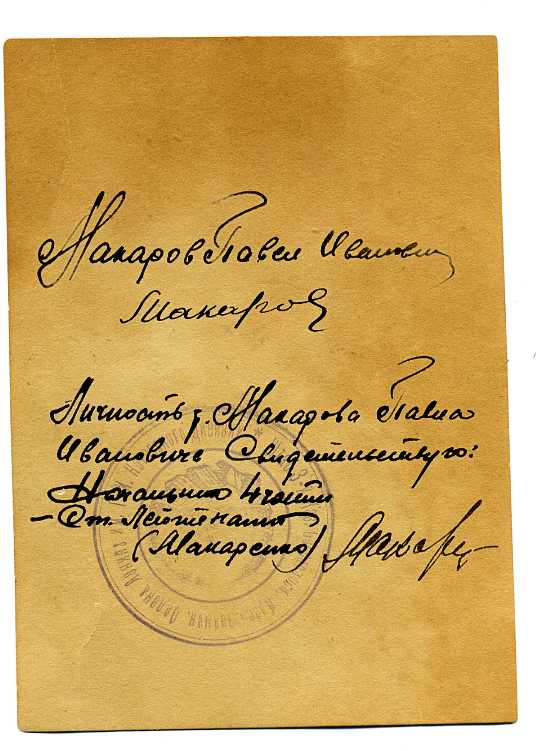 Макаров Павел Иванович
Макаров
Личность т. Макарова Павла
Ивановича Свидетельствую:
Начальник 4 части
- Ст. Лейтенант
(Макаренко)